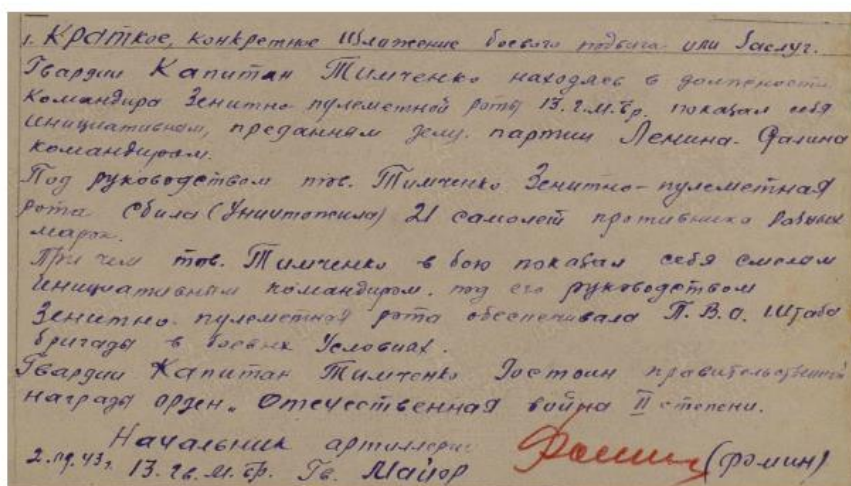 1. Краткое, конкретное изложение боевого подвига или заслуг.
Гвардии Капитан Тимченко находясь в должности
Командира Зенитно пулеметной роты 13.г.м.бр. показал себя
инициативном, преданным делу партии Ленина-Сталина
командиром.
Под руководством тов. Тимченко Зенитно-пулеметная
рота сбила (Уничтожила) 21 самолет противника разных
марок.
При чем тов. Тимченко в бою показал себя смелом
инициативным командиром. под его руководством
Зенитно-пулеметная рота обеспечивала П.В.О. Штаба
бригады в боевых Условиях.
Гвардии Капитан Тимченко Достоин правительственной
награды орден „Отечественная война II степени.
Начальник артиллерии
13.гв.м.бр. Гв. Майор (Фомин)